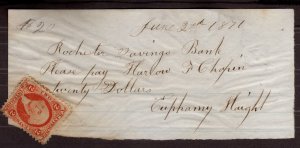 $20 June 2nd 1870
Rochester Savings Bank
Please pay Harlow P Chapin
Twenty Dollars
Euphamy Haight